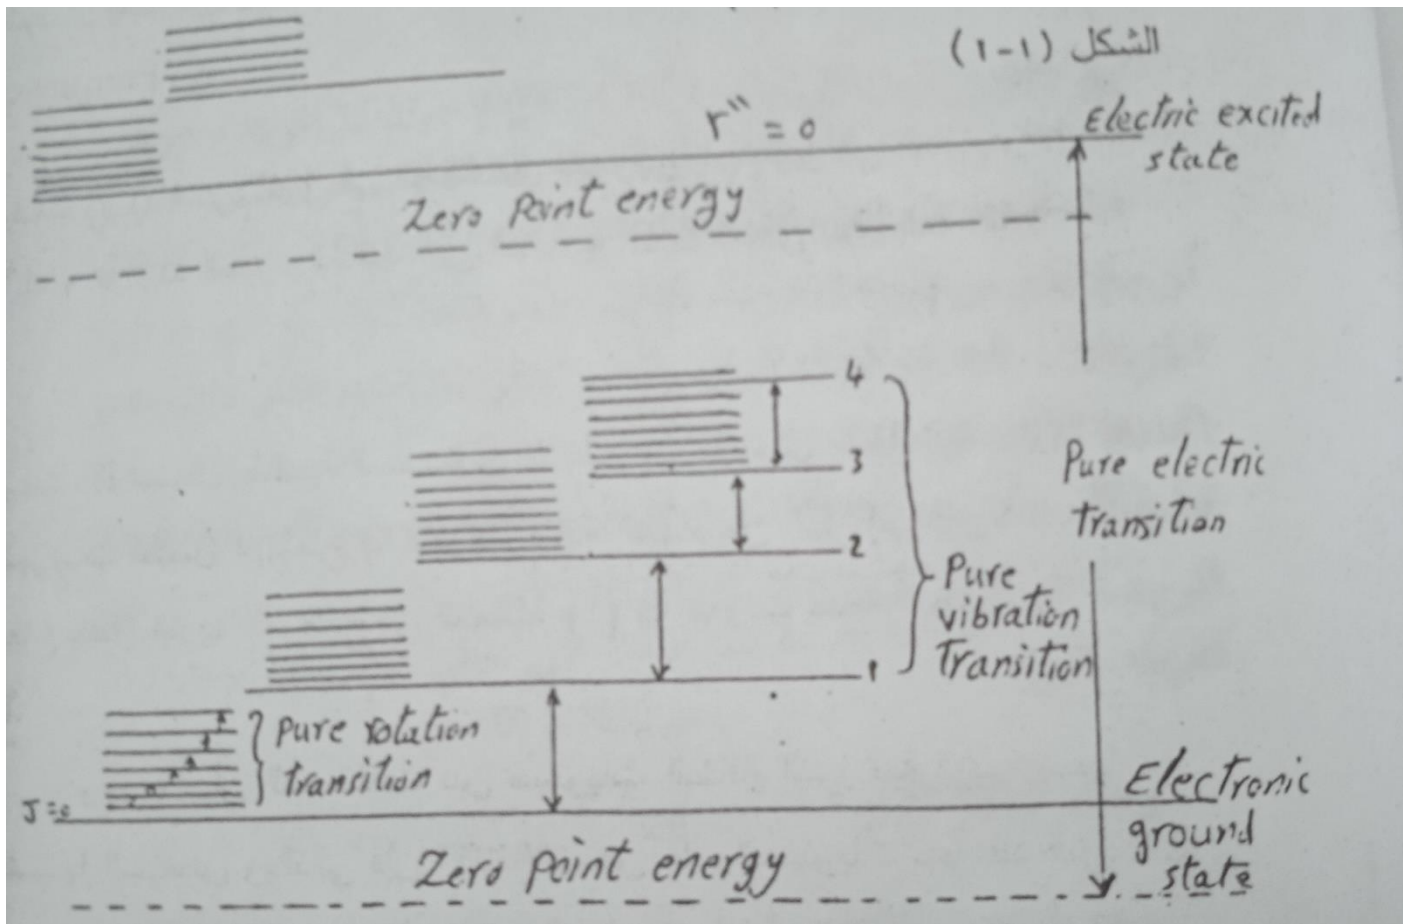 الشكل (١-١)
Electric excited
state
r" = 0
Zero point energy
4
3
2
1
Pure electric
transition
Pure
vibration
Transition
Pure rotation
transition
J=0
Electronic
ground
state
Zero point energy